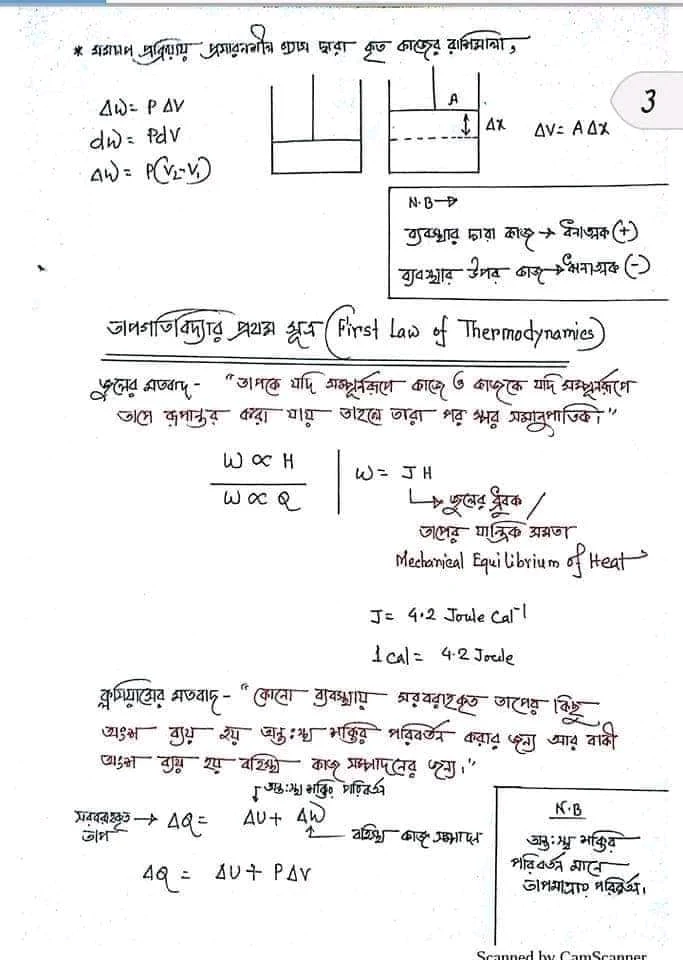 * সমচাপ প্রক্রিয়ায় প্রসারনশীল গ্যাস দ্বারা কৃত কাজের রাশিমালা,
ΔW = P ΔV
dW = PdV
ΔW = P(V₂-V₁)
A
Δx
ΔV = A Δx
3
N.B→
ব্যবস্থার দ্বারা কাজ → ধনাত্মক (+)
ব্যবস্থার উপর কাজ → ঋনাত্মক (-)
তাপগতিবিদ্যার প্রথম সূত্র (First Law of Thermodynamics)
জুলের মতবাদ - "তাপকে যদি সম্পূর্নরূপে কাজে ও কাজকে যদি সম্পূর্নরূপে
তাপে রূপান্তর করা যায় তাহলে তারা পরস্পর সমানুপাতিক।"
W ∝ H
W ∝ Q
W = JH
জুলের ধ্রুবক /
তাপের যান্ত্রিক সমতা
Mechanical Equilibrium of Heat
J = 4.2 Joule Cal⁻¹
1 Cal = 4.2 Joule
ক্লসিয়াসের মতবাদ - "কোনো ব্যবস্থায় সরবরাহকৃত তাপের কিছু
অংশ ব্যয় হয় অন্তঃস্থ শক্তির পরিবর্তন করার জন্য আর বাকী
অংশ ব্যয় হয় বহিস্থ কাজ সম্পাদনের জন্য।"
অন্তঃস্থ শক্তির পরিবর্তন
সরবরাহকৃত তাপ → ΔQ = ΔU + ΔW
বহিস্থ কাজ সম্পাদন
ΔQ = ΔU + PΔV
N.B
অন্তঃস্থ শক্তির
পরিবর্তন মানে
তাপমাত্রার পরিবর্তন।
Scanned by CamScanner